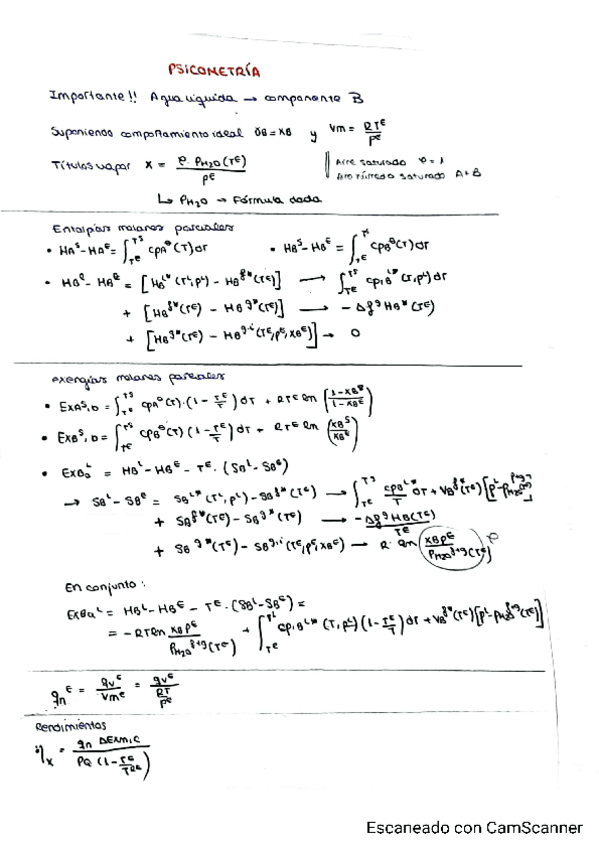 PSICOMETRÍA
Importante!! Agua líquida → componente B
Suponiendo comportamiento ideal γB = xB y Vm = RT^E / p^E
Títulos vapor x = φ · PH2O(T^E) / p^E
Aire saturado φ = 1
Aire húmedo saturado A+B
↳ PH2O → Fórmula dada
Entalpías molares parciales
• HA^S - HA^E = ∫_{T^E}^{T^S} cpA^θ(T) dT • HB^S - HB^E = ∫_{T^E}^{T^S} cpB^θ(T) dT
• HB^L - HB^E = [HB^{L*}(T, p^L) - HB^{f*}(T^E)] → ∫_{T^E}^{T^S} cp,B^{L*}(T, p^L) dT
+ [HB^{f*}(T^E) - HB^{g*}(T^E)] → - Δf^g HB*(T^E)
+ [HB^{g*}(T^E) - HB^{g,i}(T^E, p^E, xB^E)] → 0
exergías molares parciales
• ExA^S,0 = ∫_{T^E}^{T^S} cpA^θ(T) · (1 - T^E/T) dT + RT^E ln [(1 - xB^S)/(1 - xB^E)]
• ExB^S,0 = ∫_{T^E}^{T^S} cpB^θ(T) (1 - T^E/T) dT + RT^E ln (xB^S/xB^E)
• ExB0^L = HB^L - HB^E - T^E · (SB^L - SB^E)
→ SB^L - SB^E = SB^{L*}(T^L, p^L) - SB^{f*}(T^E) → ∫_{T^E}^{T^S} cpB^{L*}/T dT + VB^{f*}(T^E) [p^L - pH2O^{f+g}]
+ SB^{f*}(T^E) - SB^{g*}(T^E) → - Δf^g HB(T^E) / T^E
+ SB^{g*}(T^E) - SB^{g,i}(T^E, p^E, xB^E) → R · ln (xB p^E / PH2O^{f+g}(T^E)) φ
En conjunto :
ExB0^L = HB^L - HB^E - T^E · (SB^L - SB^E) =
= - RT ln xB p^E / PH2O^{f+g}(T^E) + ∫_{T^E}^{T^L} cp,B^{L*}(T, p^L) (1 - T^E/T) dT + VB^{f*}(T^E) [p^L - pH2O^{f+g}(T^E)]
qn^E = qv^E / Vm^E = qv^E / (RT / p^E)
Rendimientos
ηx = qn ΔExm,C / PQ (1 - T^E/TQ^E)
Escaneado con CamScanner